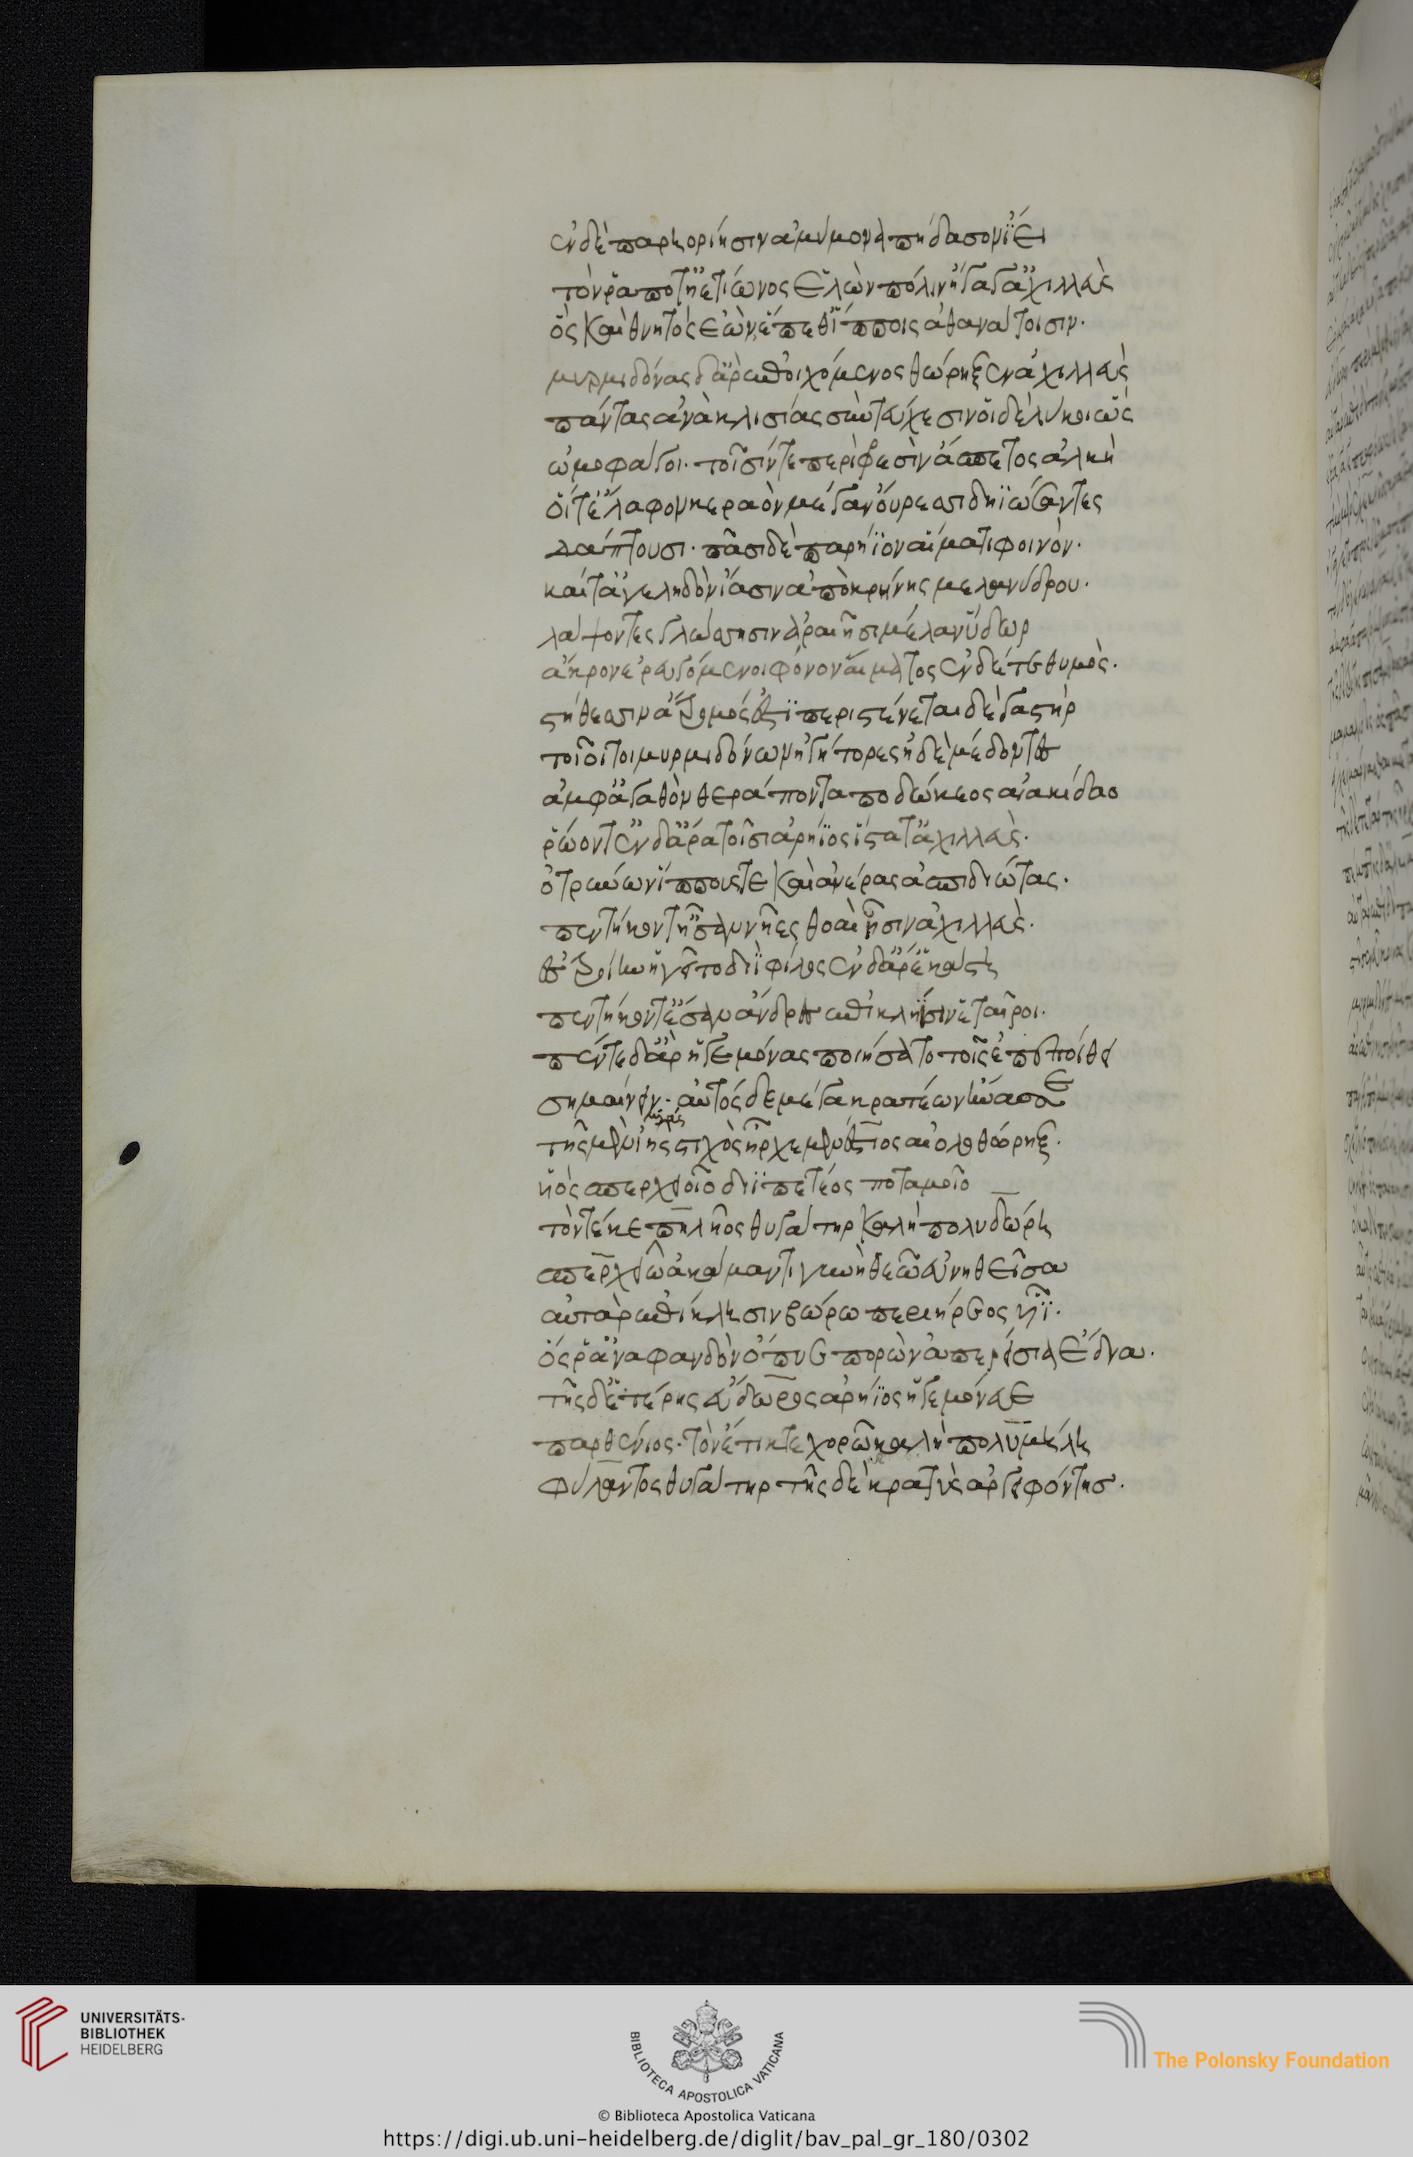 ἐν δὲ παρηορίῃσιν ἀμύμονα πήδασον ἵει
τόν ῥά ποτ' ἠετίωνος ἑλὼν πόλιν ἤγαγ' ἀχιλλεὺς
ὃς καὶ θνητὸς ἐὼν ἕπεθ' ἵπποις ἀθανάτοισιν.
μυρμιδόνας δ' ἄρ' ἐποιχόμενος θώρηξεν ἀχιλλεὺς
πάντας ἀνὰ κλισίας σὺν τεύχεσιν οἱ δὲ λύκοι ὣς
ὠμοφάγοι. τοῖσίν τε περὶ φρεσὶν ἄσπετος ἀλκὴ
οἵ τ' ἔλαφον κεραὸν μέγαν οὔρεσι δηϊώσαντες
δάπτουσι. πᾶσι δὲ παρήϊον αἵματι φοινὸν.
καί τ' ἀγεληδὸν ἴασιν ἀπὸ κρήνης μελανύδρου.
λάψοντες γλώσσῃσιν ἀραιῇσι μέλαν ὕδωρ
ἄκρον ἐρευγόμενοι φόνον αἵματος ἐν δέ τε θυμὸς.
στήθεσιν ἄτρομός ἐστϊ περιστένεται δὲ γαστὴρ
τοῖοι τοι μυρμιδόνων ἡγήτορες ἠδὲ μέδοντες
ἀμφ' ἀγαθὸν θεράποντα ποδώκεος αἰακίδαο
ῥώοντ' ἐν δ' ἄρα τοῖσιν ἀρήϊος ἵστατ' ἀχιλλεὺς.
ὀτρύνων ἵππους τε καὶ ἀνέρας ἀσπιδιώτας.
πεντήκοντ' ἦσαν νῆες θοαὶ ᾗσιν ἀχιλλεὺς.
ἐς τροίην ἡγεῖτο διῒ φίλος ἐν δ' ἄρ' ἑκάστῃ
πεντήκοντ' ἔσαν ἄνδρες ἐπὶ κληῖσιν ἑταῖροι.
πέντε δ' ἄρ' ἡγεμόνας ποιήσατο τοῖς ἐπεποίθει
σημαίνειν. αὐτὸς δὲ μέγα κρατέων ἤνασσε
τῆς μὲν ἰῆς στιχὸς ἦρχε μενέσθιος αἰολοθώρηξ.
υἱὸς σπερχειοῖο διϊπετέος ποταμοῖο
τὸν τέκε πηλῆος θυγάτηρ καλὴ πολυδώρη
σπερχειῶ ἀκάμαντι γυνὴ θεῶ εὐνηθεῖσα
αὐτὰρ ἐπίκλησιν βώρω περιήρεος υἷϊ.
ὅς ῥ' ἀναφανδὸν ὄπυιε πορὼν ἀπερείσια ἕδνα.
τῆς δ' ἑτέρης εὔδωρος ἀρήϊος ἡγεμόνευε
παρθένιος. τὸν ἔτικτε χορῶ καλὴ πολυμήλη
φύλαντος θυγάτηρ τῆς δὲ κρατὺς ἀργειφόντης.
UNIVERSITÄTS-
BIBLIOTHEK
HEIDELBERG
BIBLIOTECA APOSTOLICA VATICANA
The Polonsky Foundation
© Biblioteca Apostolica Vaticana
https://digi.ub.uni-heidelberg.de/diglit/bav_pal_gr_180/0302